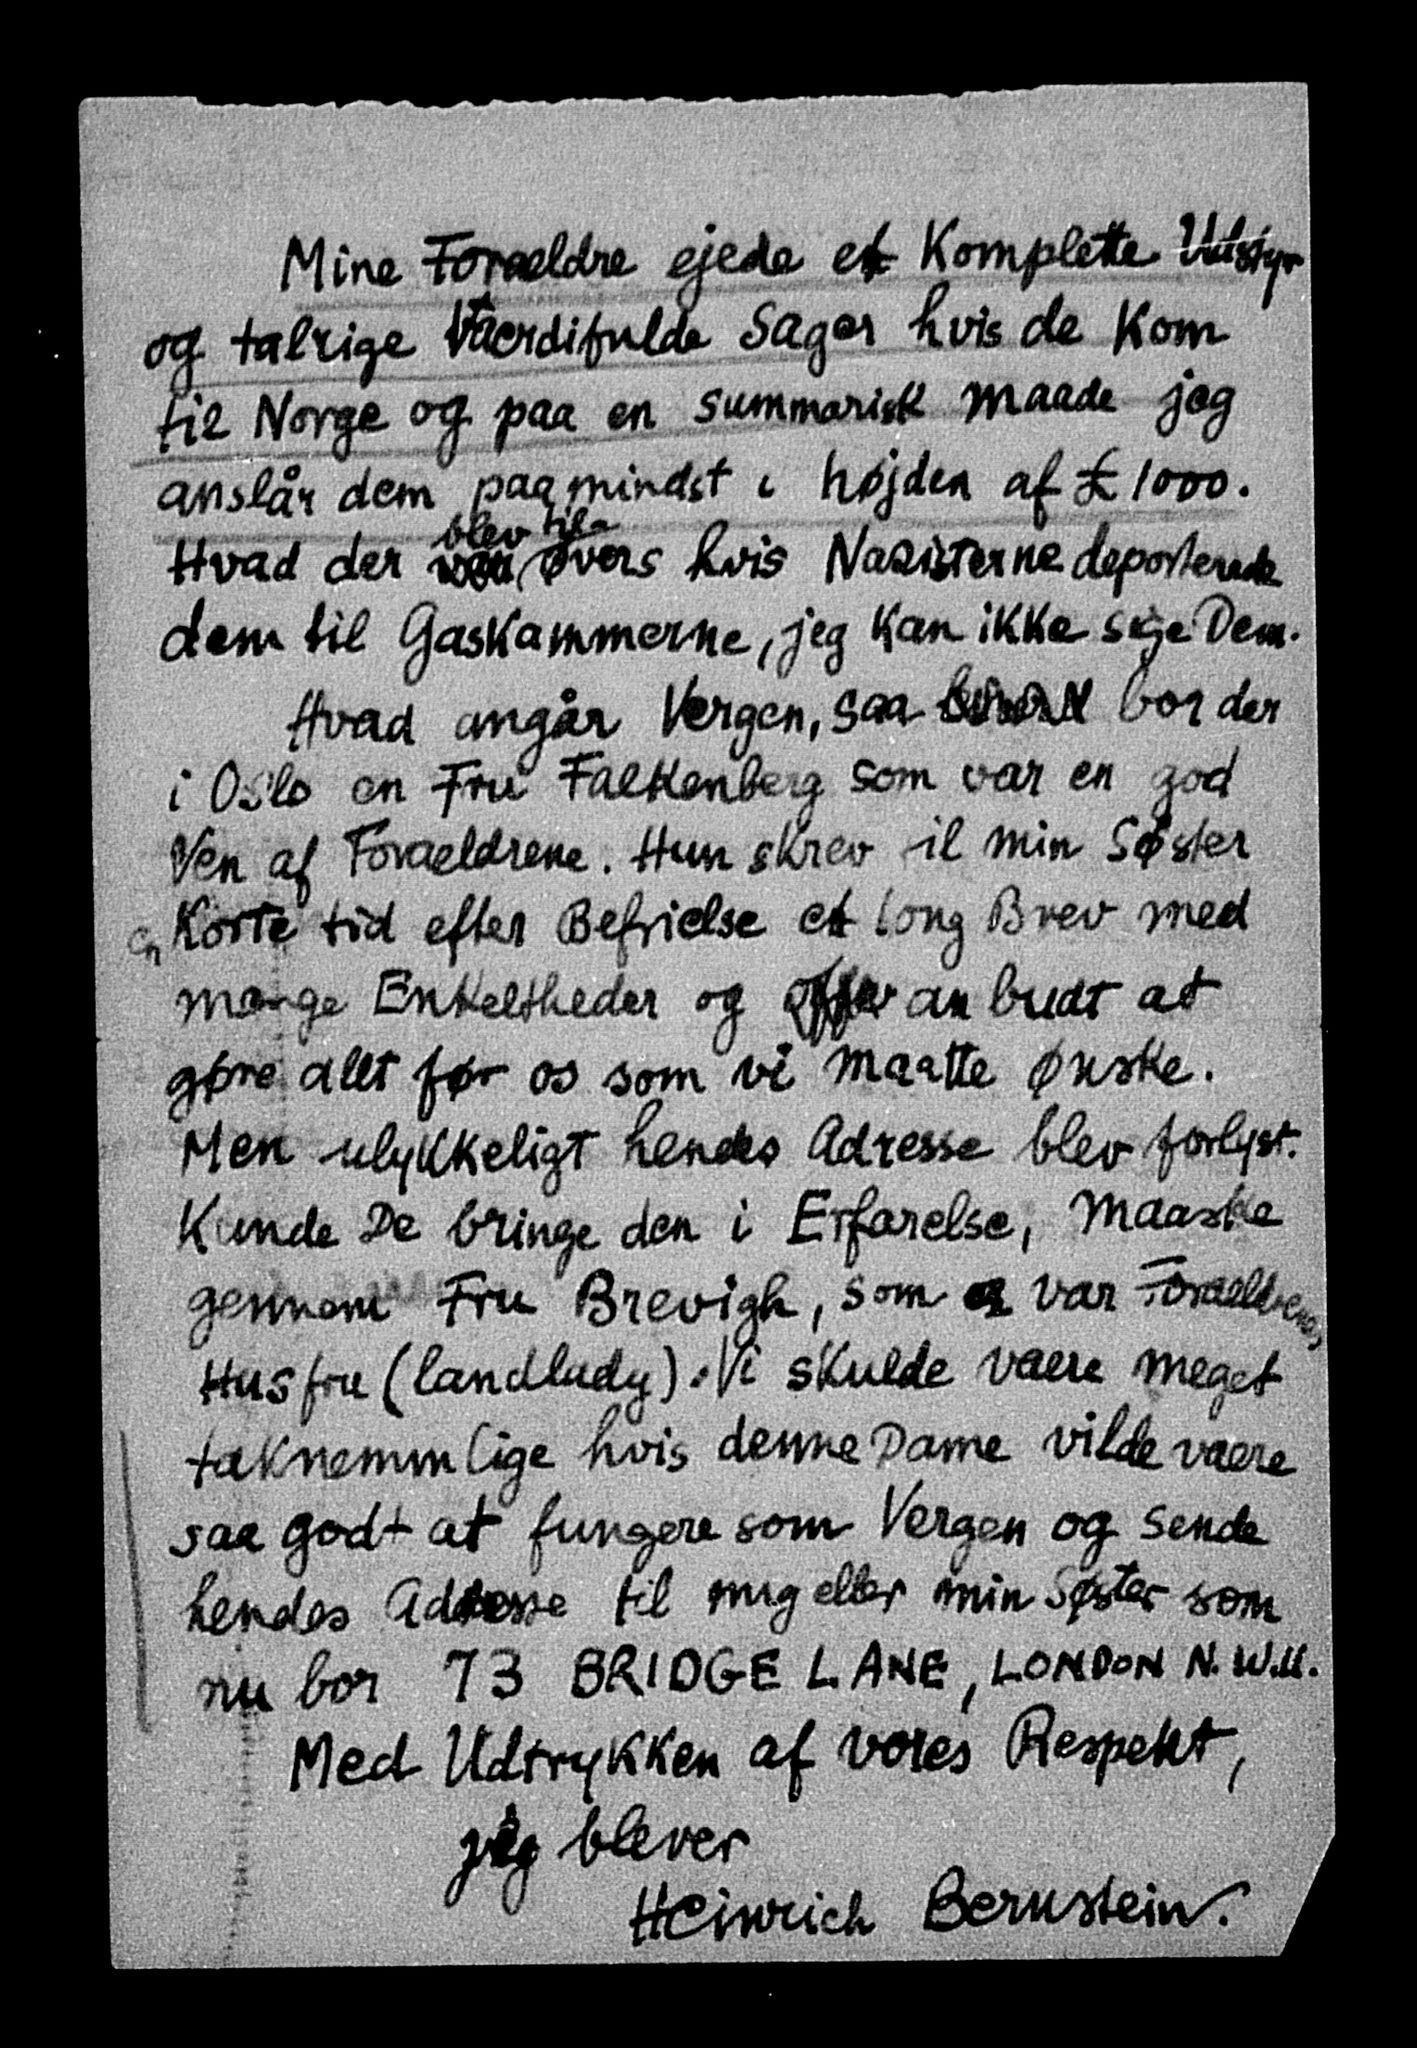 Mine Foraeldre ejede et Komplette Udstyr
og talrige Vaerdifulde Sager hvis de Kom
til Norge og paa en summarisk Maade jeg
anslår dem paa mindst i højden af £ 1000.
Hvad der blev til overs hvis Nazisterne deporterede
dem til Gaskammerne, jeg Kan ikke sige Dem.
Hvad angår Vergen, saa bor der
i Oslo en Fru Falkenberg som var en god
Ven af Foraeldrene. Hun skrev til min Søster
en Korte tid efter Befrielse et long Brev med
mange Enkeltheder og an budt at
gøre allt før os som vi Maatte Ønske.
Men ulykkeligt hendes Adresse blev forlyst.
Kunde De bringe den i Erfarelse, Maaske
gennem Fru Brevigh, som var Foraeldrenes
Husfru (landlady). Vi skulde vaere meget
taknemmlige hvis denne Dame vilde vaere
saa godt at fungere som Vergen og sende
hendes Adresse til mig eller min Søster som
nu bor 73 BRIDGE LANE, LONDON N.W.11.
Med Udtrykken af vores Respekt,
jeg blever
Heinrich Bernstein.